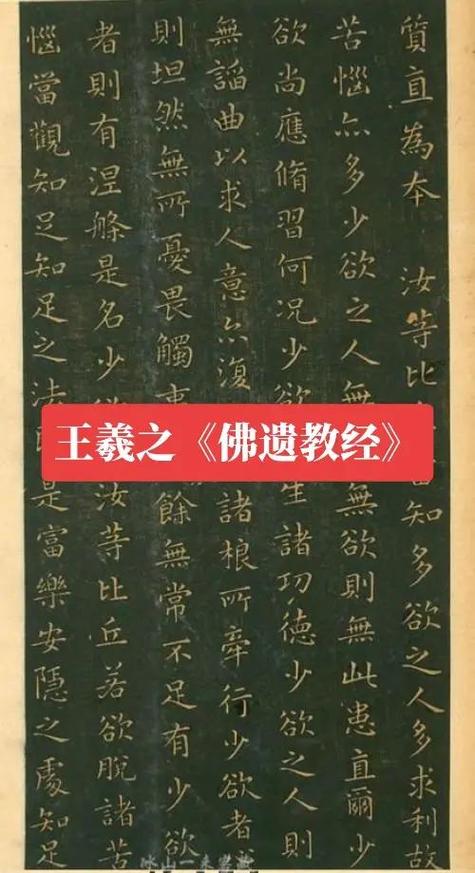 質直為本 汝等比 知多欲之人多求利故
苦惱亦多少欲之人無 無欲則無此患直爾少
欲尚應脩習何況少欲 生諸功德少欲之人則
無諂曲以求人意亦復 諸根所牽行少欲者
則坦然無所憂畏觸 餘無常不足有少欲
者則有涅槃是名少 汝等比丘若欲脫諸苦
惱當觀知足知足之法 是富樂安隱之處知足
王羲之《佛遗教经》